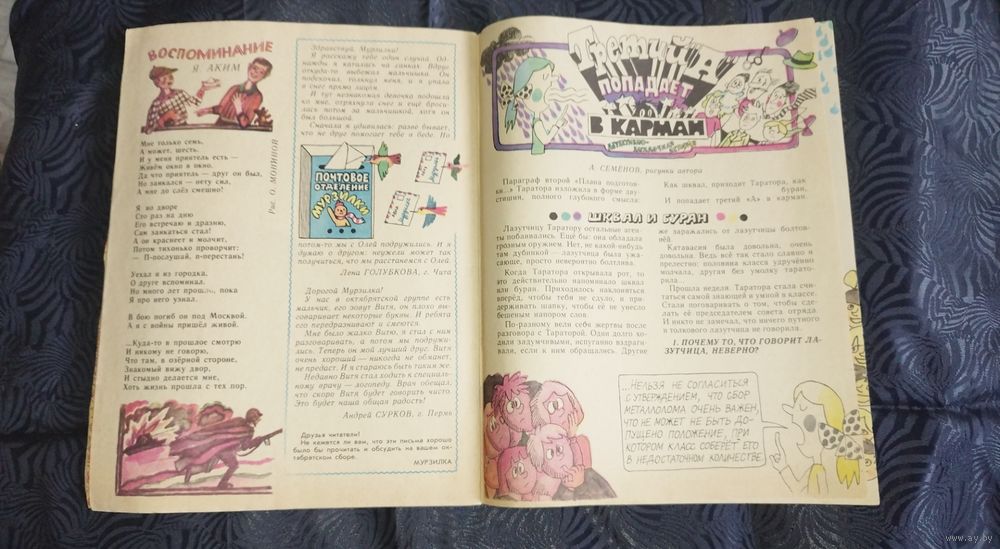 ВОСПОМИНАНИЕ
Я. АКИМ
Мне только семь,
А может, шесть.
И у меня приятель есть —
Живём окно в окно.
Да что приятель — друг он был,
Но заикался — нету сил,
А мне до слёз смешно!
Я во дворе
Сто раз на дню
Его встречаю и дразню,
Сам заикаться стал!
А он краснеет и молчит,
Потом тихонько проворчит:
— П-послушай, п-перестань!
Уехал я из городка,
О друге вспоминал.
Но много лет прошло, пока
Я про него узнал.
В бою погиб он под Москвой.
А я с войны пришёл живой.
...Куда-то в прошлое смотрю
И никому не говорю,
Что там, в озёрной стороне,
Знакомый вижу двор,
И стыдно делается мне,
Хоть жизнь прошла с тех пор.
Рис. О. МОНИНОЙ
Здравствуй, Мурзилка!
Я расскажу тебе один случай. Од-
нажды я каталась на санках. Вдруг
откуда-то выбежал мальчишка. Он
подскочил, толкнул меня, и я упала
в снег прямо лицом.
И тут незнакомая девочка подошла
ко мне, отряхнула снег и ещё броси-
лась потом за мальчишкой, хотя он
был большой.
Сначала я удивилась: разве бывает,
что не друг помогает тебе в беде. Но
ПОЧТОВОЕ
ОТДЕЛЕНИЕ
МУРЗИЛКИ
потом-то мы с Олей подружились. И я
думаю о другом: неужели может так
получиться, что мы расстанемся с Олей.
Лена ГОЛУБКОВА, г. Чита
Дорогой Мурзилка!
У нас в октябрятской группе есть
мальчик, его зовут Витя, он плохо вы-
говаривает некоторые буквы. И ребята
его передразнивают и смеются.
Мне было жалко Витю, я стал с ним
разговаривать, а потом мы подружи-
лись. Теперь он мой лучший друг. Витя
очень хороший — никогда не обманет,
не предаст. И я стараюсь быть таким же.
Недавно Витя стал ходить к специаль-
ному врачу — логопеду. Врач обещал,
что скоро Витя будет говорить чисто.
Это будет наша общая радость!
Андрей СУРКОВ, г. Пермь
Друзья читатели!
Не кажется ли вам, что эти письма хорошо
было бы прочитать и обсудить на вашем ок-
тябрятском сборе.
МУРЗИЛКА
Третий А
ПОПАДАЕТ
В КАРМАН
А. СЕМЕНОВ, рисунки автора
Параграф второй «Плана подготов-
ки...» Таратора изложила в форме дву-
стишия, полного глубокого смысла:
Как шквал, приходит Таратора, как
буран,
И попадает третий «А» в карман.
ШКВАЛ И БУРАН
Лазутчицу Таратору остальные аген-
ты побаивались. Ещё бы: она обладала
грозным оружием. Нет, не какой-нибудь
там дубинкой — лазутчица была ужа-
сающе, просто невероятно болтлива.
Когда Таратора открывала рот, то
это действительно напоминало шквал
или буран. Приходилось наклоняться
вперёд, чтобы тебя не сдуло, и при-
держивать шапку, чтобы её не унесло
бешеным напором слов.
По-разному вели себя жертвы после
разговора с Тараторой. Одни долго хо-
дили задумчивыми, испуганно вздраги-
вали, если к ним обращались. Другие
же заражались от лазутчицы болтов-
нёй.
Катавасия была довольна, очень
довольна. Ведь всё так стало славно и
прелестно: половина класса удручённо
молчала, другая без умолку тарато-
рила...
Прошла неделя. Таратора стала счи-
таться самой знающей и умной в классе.
Стали поговаривать о том, чтобы сде-
лать её председателем совета отряда.
И никто не замечал, что ничего путного
и толкового лазутчица не говорила.
1. ПОЧЕМУ ТО, ЧТО ГОВОРИТ ЛА-
ЗУТЧИЦА, НЕВЕРНО?
...НЕЛЬЗЯ НЕ СОГЛАСИТЬСЯ
С УТВЕРЖДЕНИЕМ, ЧТО СБОР
МЕТАЛЛОЛОМА ОЧЕНЬ ВАЖЕН,
ЧТО НЕ МОЖЕТ НЕ БЫТЬ ДО-
ПУЩЕНО ПОЛОЖЕНИЕ, ПРИ
КОТОРОМ КЛАСС СОБЕРЁТ ЕГО
В НЕДОСТАТОЧНОМ КОЛИЧЕСТВЕ.
www.ay.by